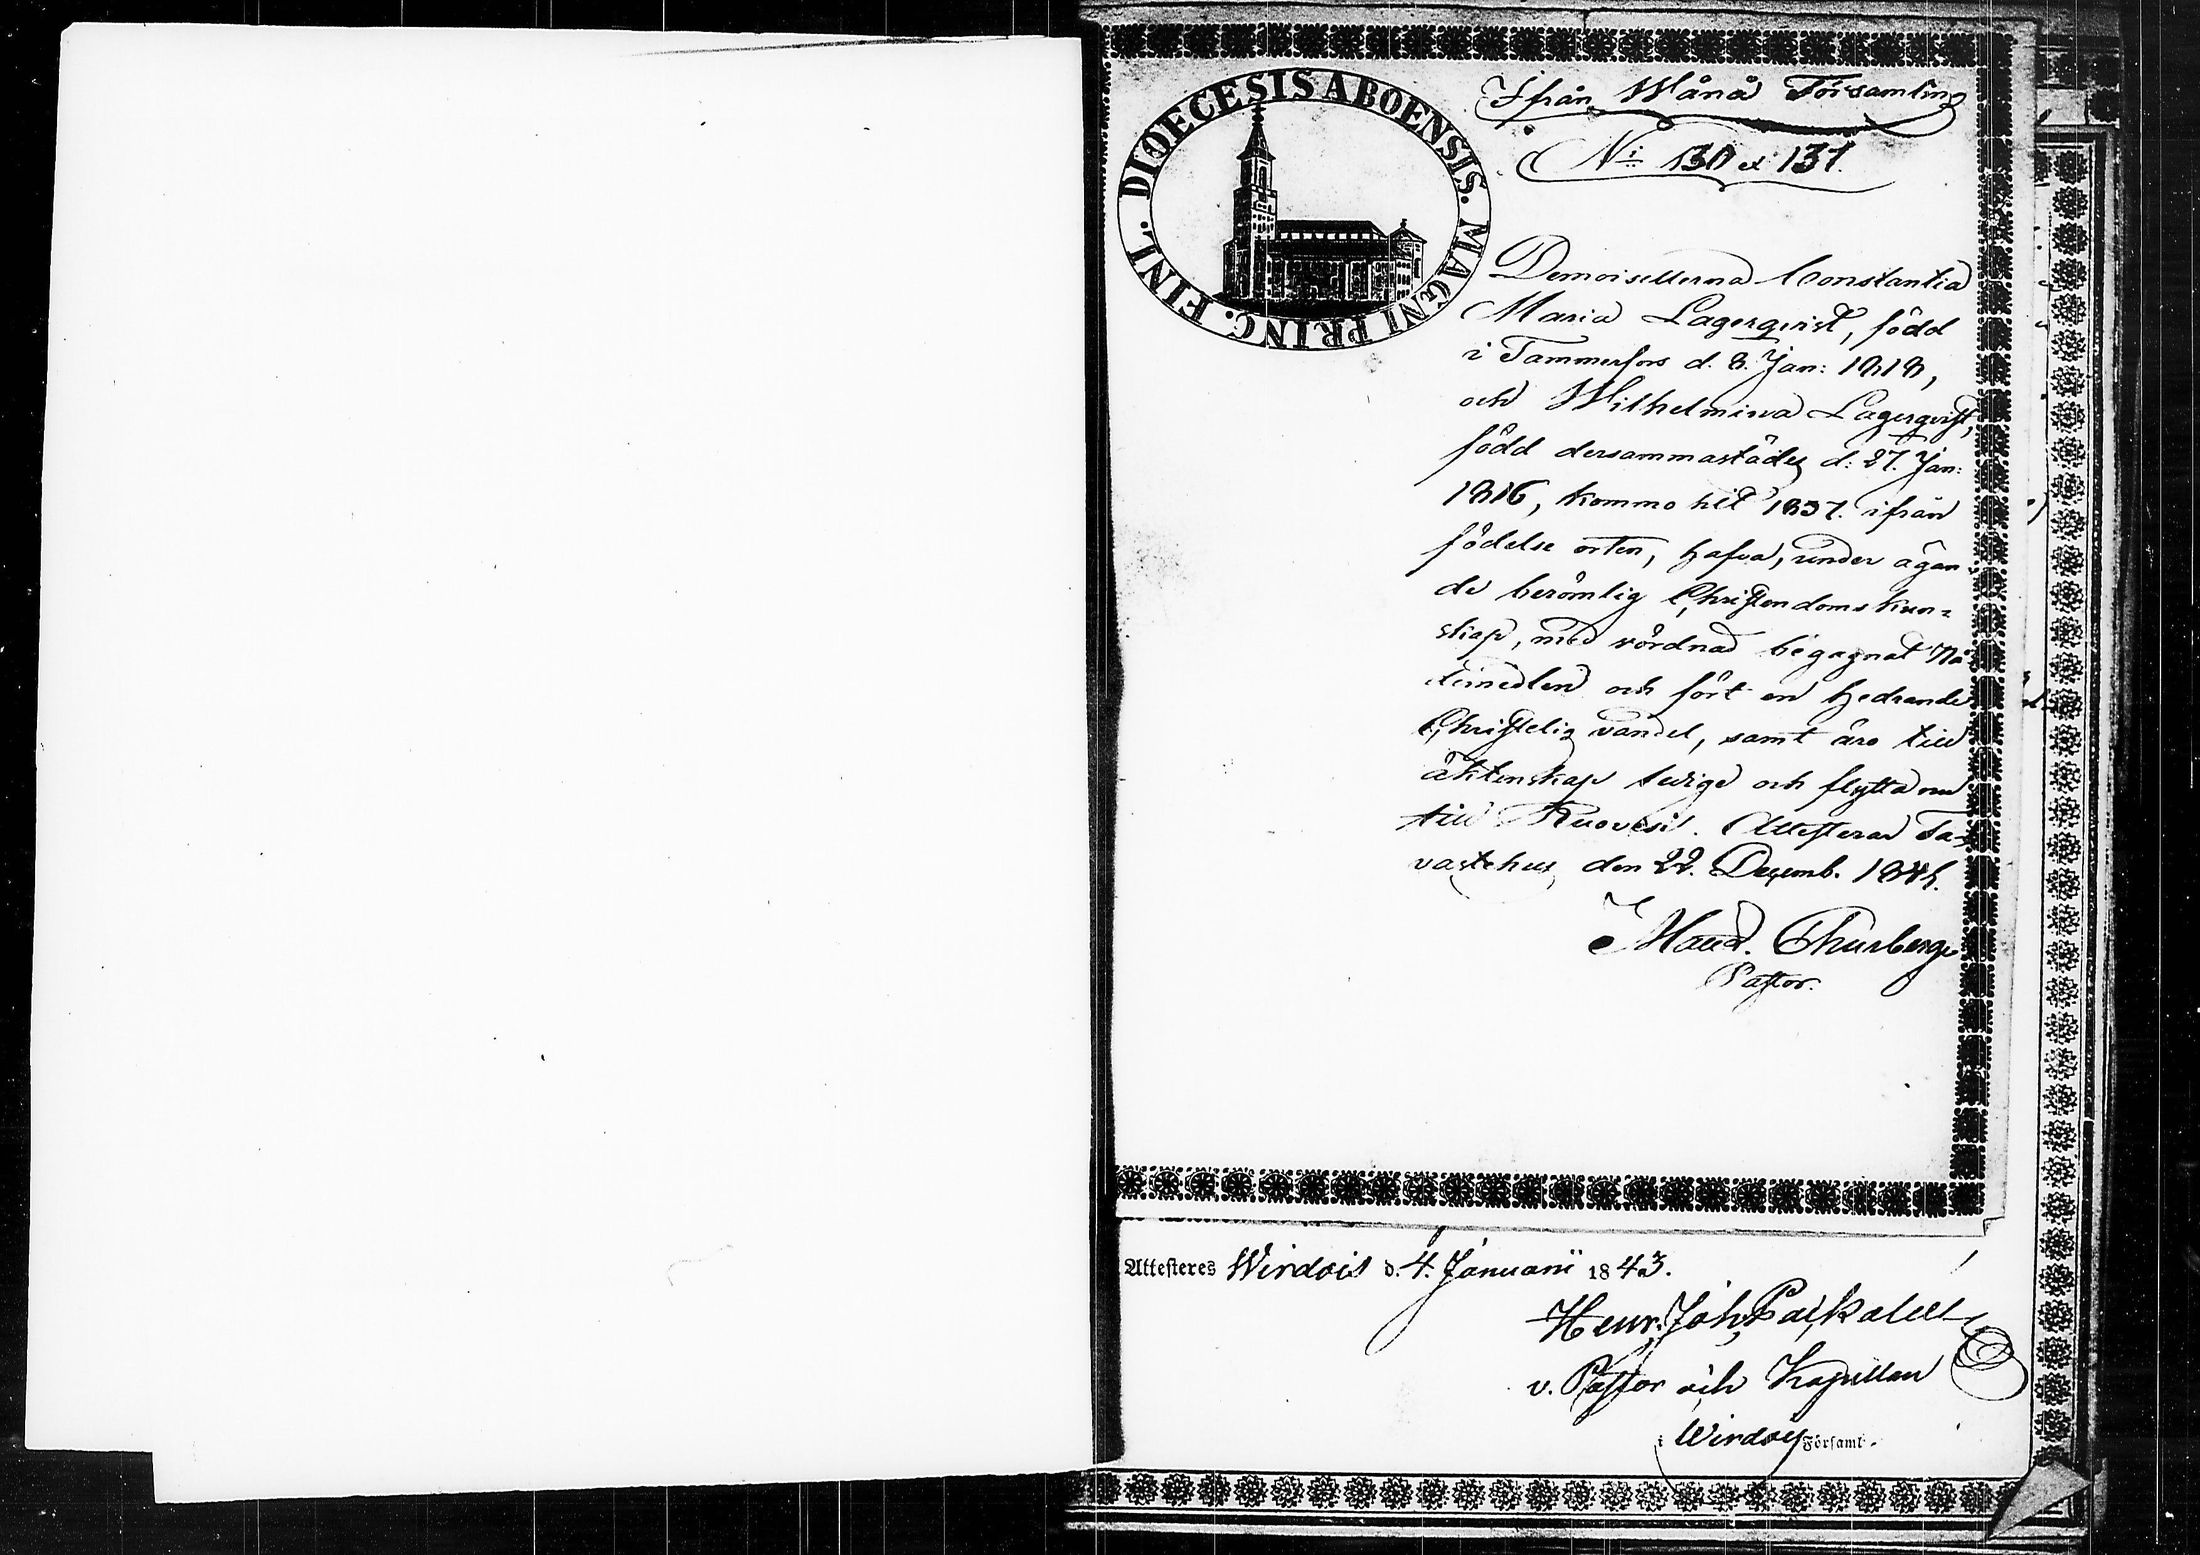 DIOECESIS ABOENSIS. MAGNI PRINC. FINL.
Ifrån Wånå Församling
N: 130 et 131.
Demoisellerna Constantia
Maria Lagerqvist, född
i Tammerfors d. 8. Jan: 1818,
och Wilhelmina Lagerqvist,
född dersammastädes d: 27. Jan:
1816, kommo hit 1837. ifrån
födelse orten, hafva, under ägan=
de berömlig Christendoms kun=
skap, med vördnad begagnat Nå=
demedlen och fört en hedrande
Christelig vandel, samt äro till
äktenskap ledige och flytta nu
till Ruovesi. Attesterar Ta=
vastehus den 22. Decemb. 1842.
Maur. Thurberg
Pastor.
Attesteres Wirdois d. 4. Januarii 1843.
Henr. Joh.
v. Pastor och Kapellan
i Wirdois Församl.